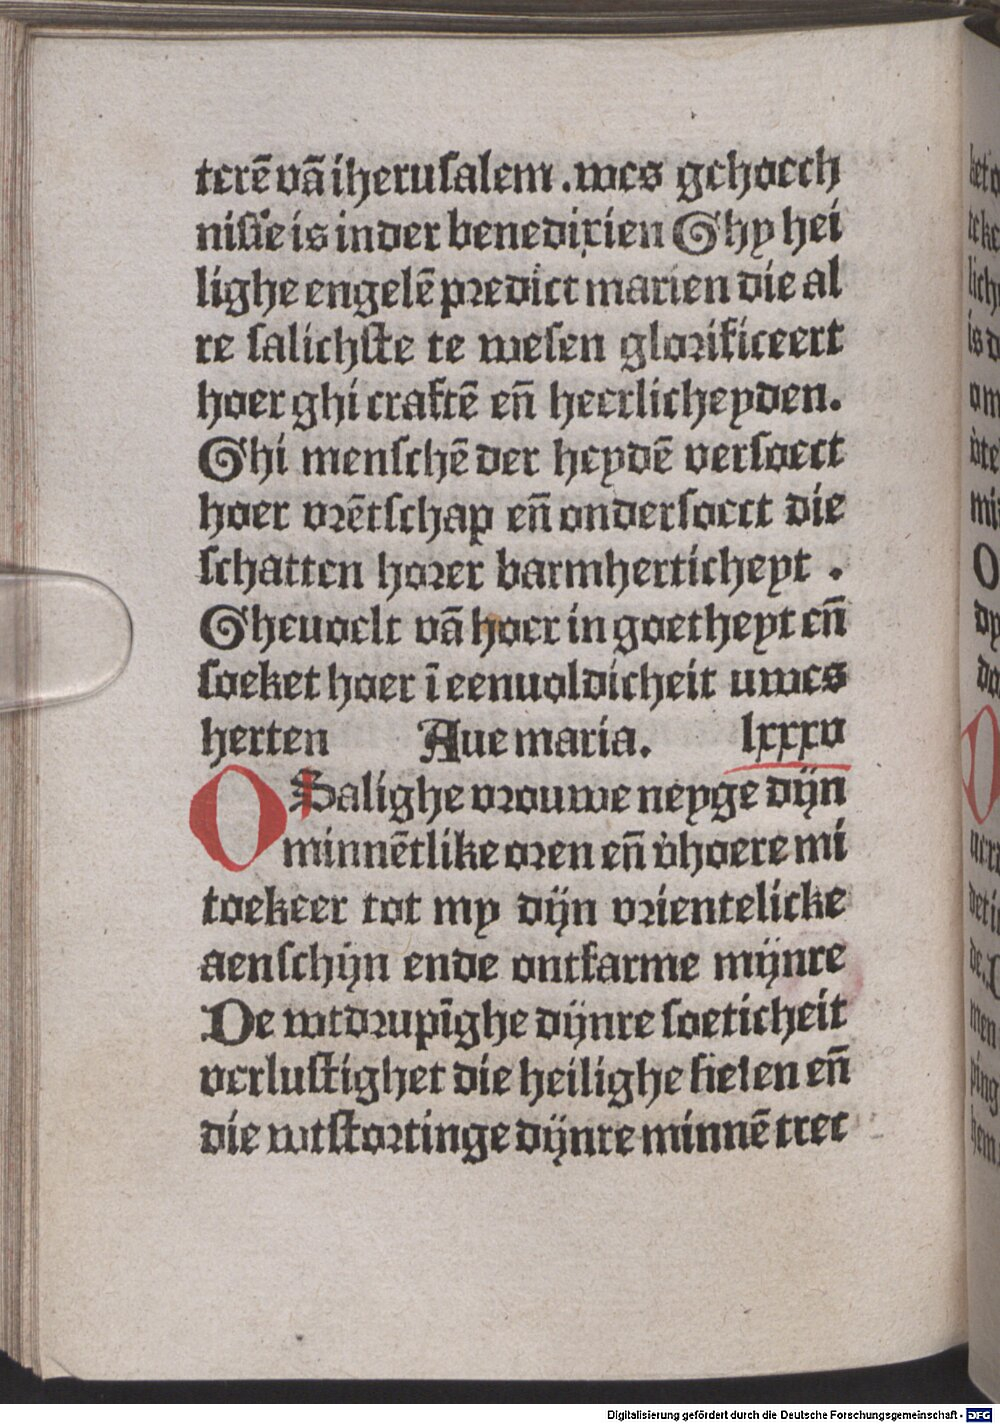 terē vā iherusalem . wes gehoech
nisse is in der benedixien Ghy hei
lighe engelē predict marien die al
re salichste te wesen glorificeert
hoer ghi craftē eñ heerlicheyden.
Ghi menschē der heydē versoect
hoer vrētschap eñ ondersoect die
schatten horer barmherticheyt .
Gheuoelt vā hoer in goetheyt eñ
soeket hoer ī eenuoldicheit uwes
herten Aue maria. lxxxv
O Salighe vrouwe neyge dijn
minnētlike oren eñ v̓hoere mi
toekeer tot my dijn vrientelicke
aenschijn ende ontfarme mijnre
De wtdrupīghe dijnre soeticheit
verlustighet die heilighe sielen eñ
die wtstortinge dijnre minnē tret
Digitalisierung gefördert durch die Deutsche Forschungsgemeinschaft - DFG